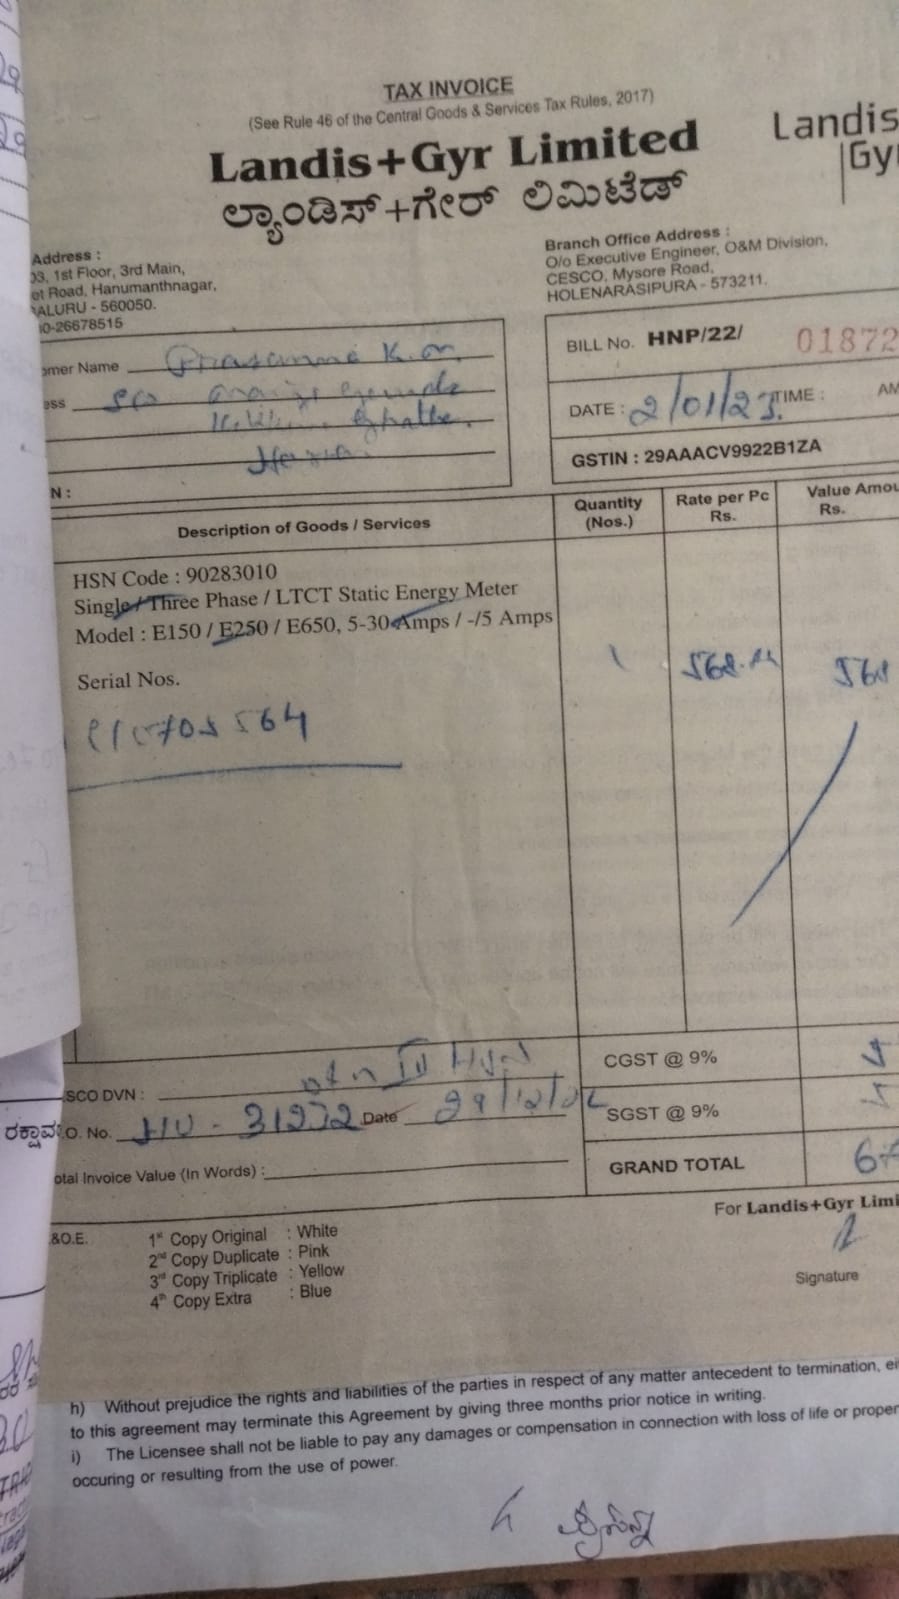 TAX INVOICE
(See Rule 46 of the Central Goods & Services Tax Rules, 2017)
Landis+Gyr Limited
ಲ್ಯಾಂಡಿಸ್+ಗೇರ್ ಲಿಮಿಟೆಡ್
Landis
Gy
Address :
03, 1st Floor, 3rd Main,
et Road, Hanumanthnagar,
ALURU - 560050.
0-26678515
Branch Office Address :
O/o Executive Engineer, O&M Division,
CESCO, Mysore Road,
HOLENARASIPURA - 573211.
omer Name Prasanna K.
ess
N :
BILL No. HNP/22/ 01872
DATE : 2/01/23. TIME : AM
GSTIN : 29AAACV9922B1ZA
Description of Goods / Services Quantity (Nos.) Rate per Pc Rs. Value Amou Rs.
HSN Code : 90283010
Single / Three Phase / LTCT Static Energy Meter
Model : E150 / E250 / E650, 5-30 Amps / -/5 Amps
Serial Nos.
1 568. 568
564
SCO DVN :
CGST @ 9% 5
ರಕ್ಷಾವ
.O. No. Date 29/12/22
SGST @ 9% 5
otal Invoice Value (In Words) :
GRAND TOTAL 67
For Landis+Gyr Limi
.&O.E.
1st Copy Original : White
2nd Copy Duplicate : Pink
3rd Copy Triplicate : Yellow
4th Copy Extra : Blue
Signature
h) Without prejudice the rights and liabilities of the parties in respect of any matter antecedent to termination, ei
to this agreement may terminate this Agreement by giving three months prior notice in writing.
i) The Licensee shall not be liable to pay any damages or compensation in connection with loss of life or proper
occuring or resulting from the use of power.